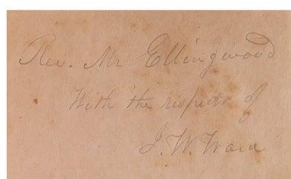 Rev. Mr Ellingwood
With the respects of
J. W. Ward